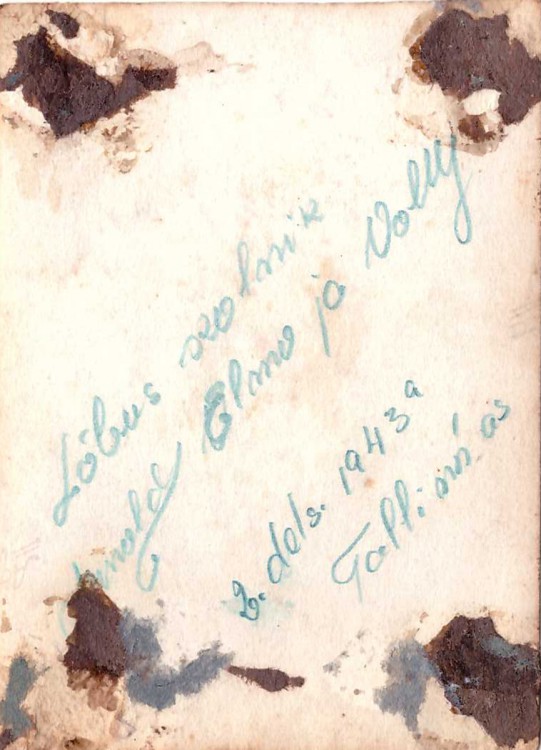 Lõbus seltskond
Arnold, Elmo ja Volly
2. dets. 1943 a
Tallinnas